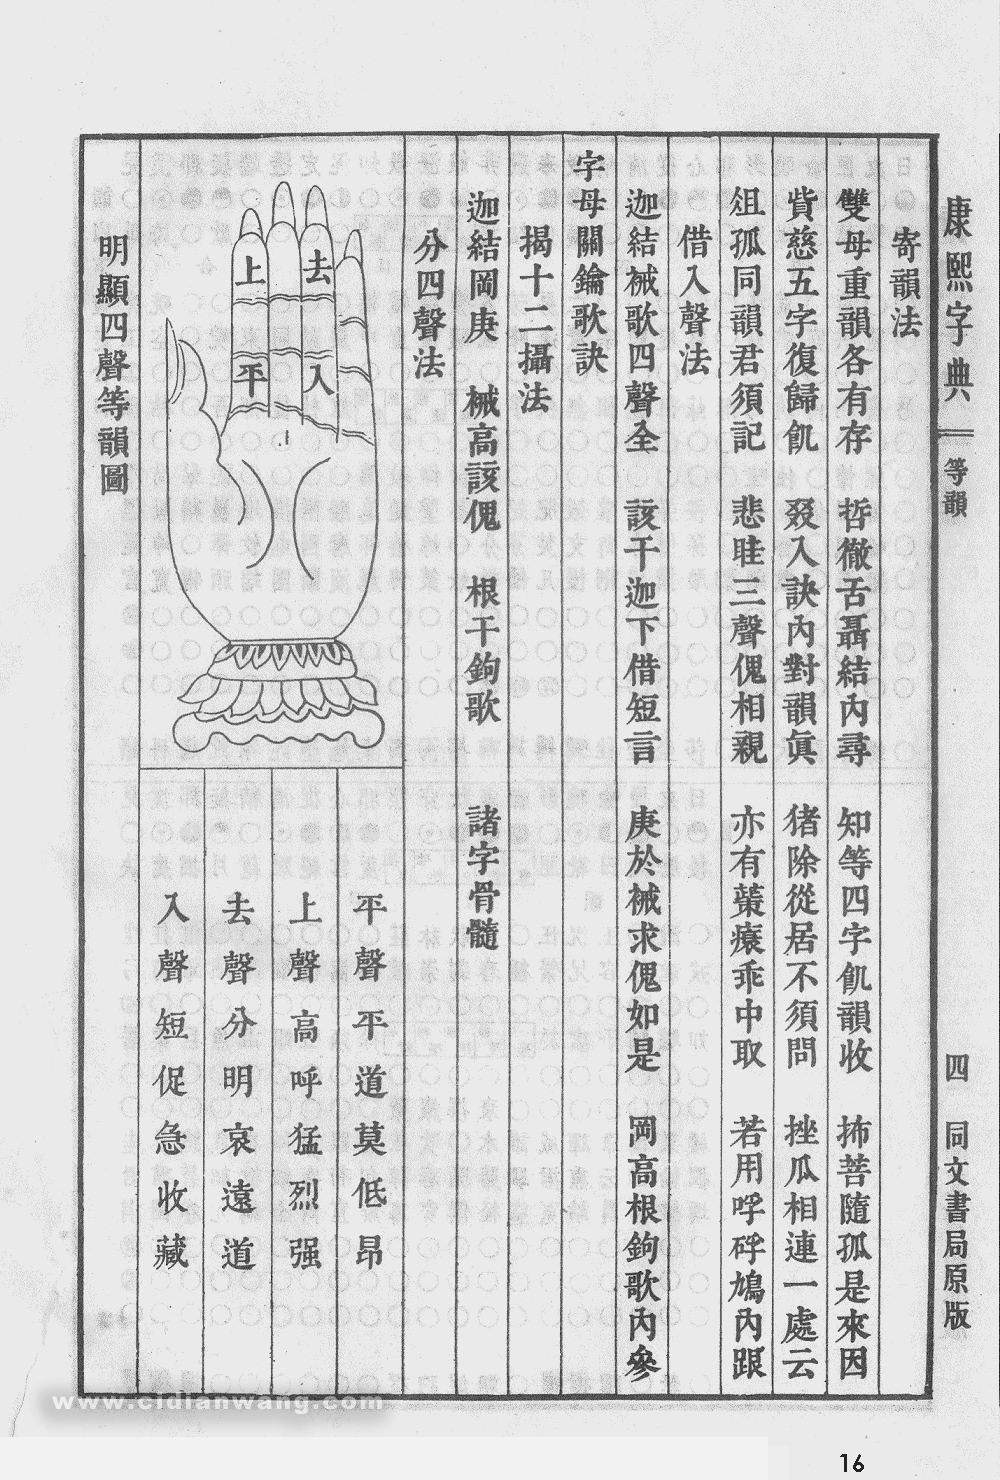 康熙字典 等韻 四 同文書局原版
寄韻法
雙母重韻各有存 哲徹舌聶結內尋 知等四字飢韻收 抪菩隨孤是來因
貲慈五字復歸飢 叕入訣內對韻眞 猪除從居不須問 挫瓜相連一處云
俎孤同韻君須記 悲眭三聲傀相親 亦有蘃瘝乖中取 若用呼砰鳩內跟
借入聲法
迦結祴歌四聲全 該干迦下借短言 庚於祴求傀如是 岡高根鉤歌內參
字母關鑰歌訣
揭十二攝法
迦結岡庚 祴高該傀 根干鉤歌 諸字骨髓
分四聲法
上
去
平
入
平聲平道莫低昂
上聲高呼猛烈强
去聲分明哀遠道
入聲短促急收藏
明顯四聲等韻圖
www.cidianwang.com
16